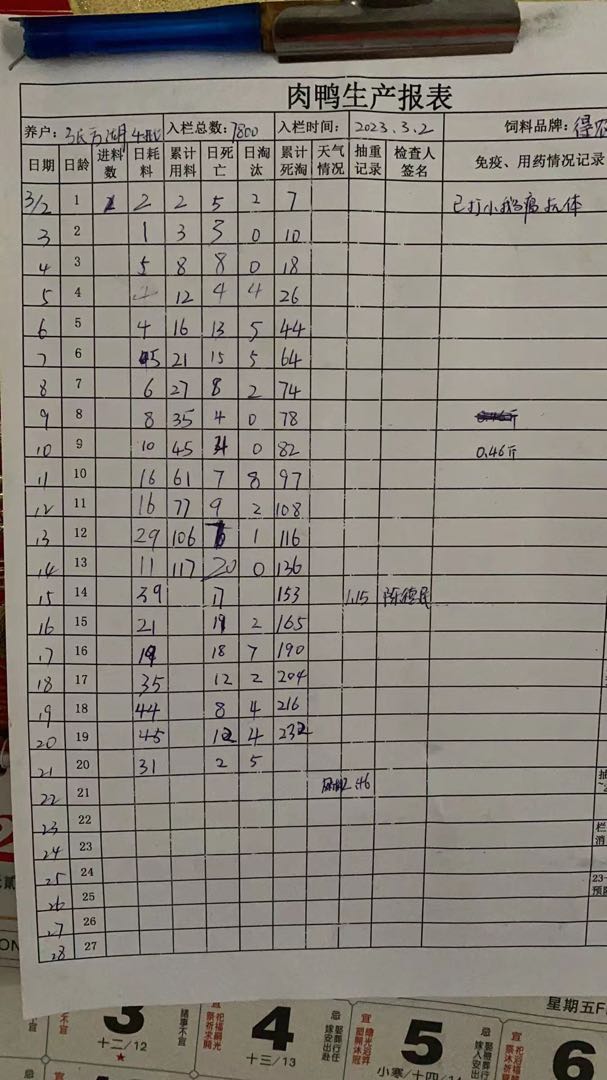 肉鸭生产报表
养户: 张方湖 入栏总数: 7800 入栏时间: 2023.3.2 饲料品牌: 得
日期 日龄 进料数 日耗料 累计用料 日死亡 日淘汰 累计死淘 天气情况 抽重记录 检查人签名 免疫、用药情况记录
3/2 1 2 2 5 2 7 已打小鹅瘟抗体
3 2 1 3 3 0 10
4 3 5 8 8 0 18
5 4 4 12 4 4 26
6 5 4 16 13 5 44
7 6 5 21 15 5 64
8 7 6 27 8 2 74
9 8 8 35 4 0 78
10 9 10 45 4 0 82 0.46斤
11 10 16 61 7 8 97
12 11 16 77 9 2 108
13 12 29 106 1 116
14 13 11 117 20 0 136
15 14 39 17 153 1.15
16 15 21 2 165
17 16 18 7 190
18 17 35 12 2 204
19 18 44 8 4 216
20 19 45 12 4 232
21 20 31 2 5
22 21 2.46
23 22
24 23
25 24
26 25
27 26
28 27
星期五
3 4 5 6
十二/12 十三/13 小寒/十四/14